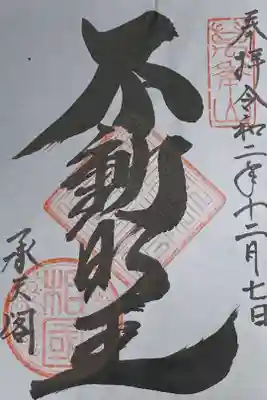 奉拝 令和二年十二月七日
不動明王
承天閣
相国